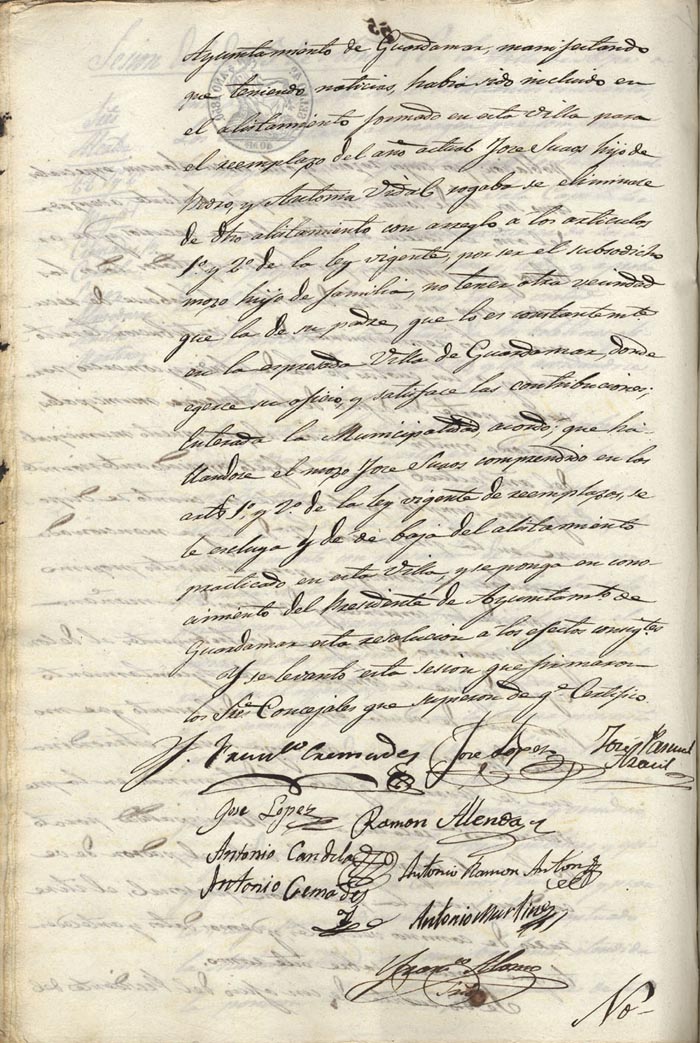 Ayuntamiento de Guardamar, manifestando
que teniendo noticias, habia sido incluido en
el alistamiento formado en esta Villa para
el reemplazo del año actual Jose hijo de
Pedro, y Antonia Vidal, rogaba se eliminase
de dho alistamiento con arreglo a los articulos
1º y 2º de la ley vigente, por ser el susodicho
mozo hijo de familia, no tener otra vecindad
que la de su padre, que lo es constantemte.
en la espresada Villa de Guardamar, donde
egerce su oficio, y satisface las contribuciones;
Enterada la Municipalidad, acordó; que ha-
llandose el mozo Jose comprendido en los
arts. 1º y 2º de la ley vigente de reemplazos, se
le escluya y de de baja del alistamiento
practicado en esta Villa, y se ponga en cono-
cimiento del Presidente de Ayuntamto de
Guardamar esta resolucion á los efectos consigtes
Y se levantó esta sesion que firmaron
los Sres Concejales que supieron de qe Certifico.
Franco Cremades José López José Pascual
José López Ramon Allenda
Antonio Candela Antonio Ramon Anton
Antonio Cremades Antonio Martinez
Franco Alonso
Srio
No-